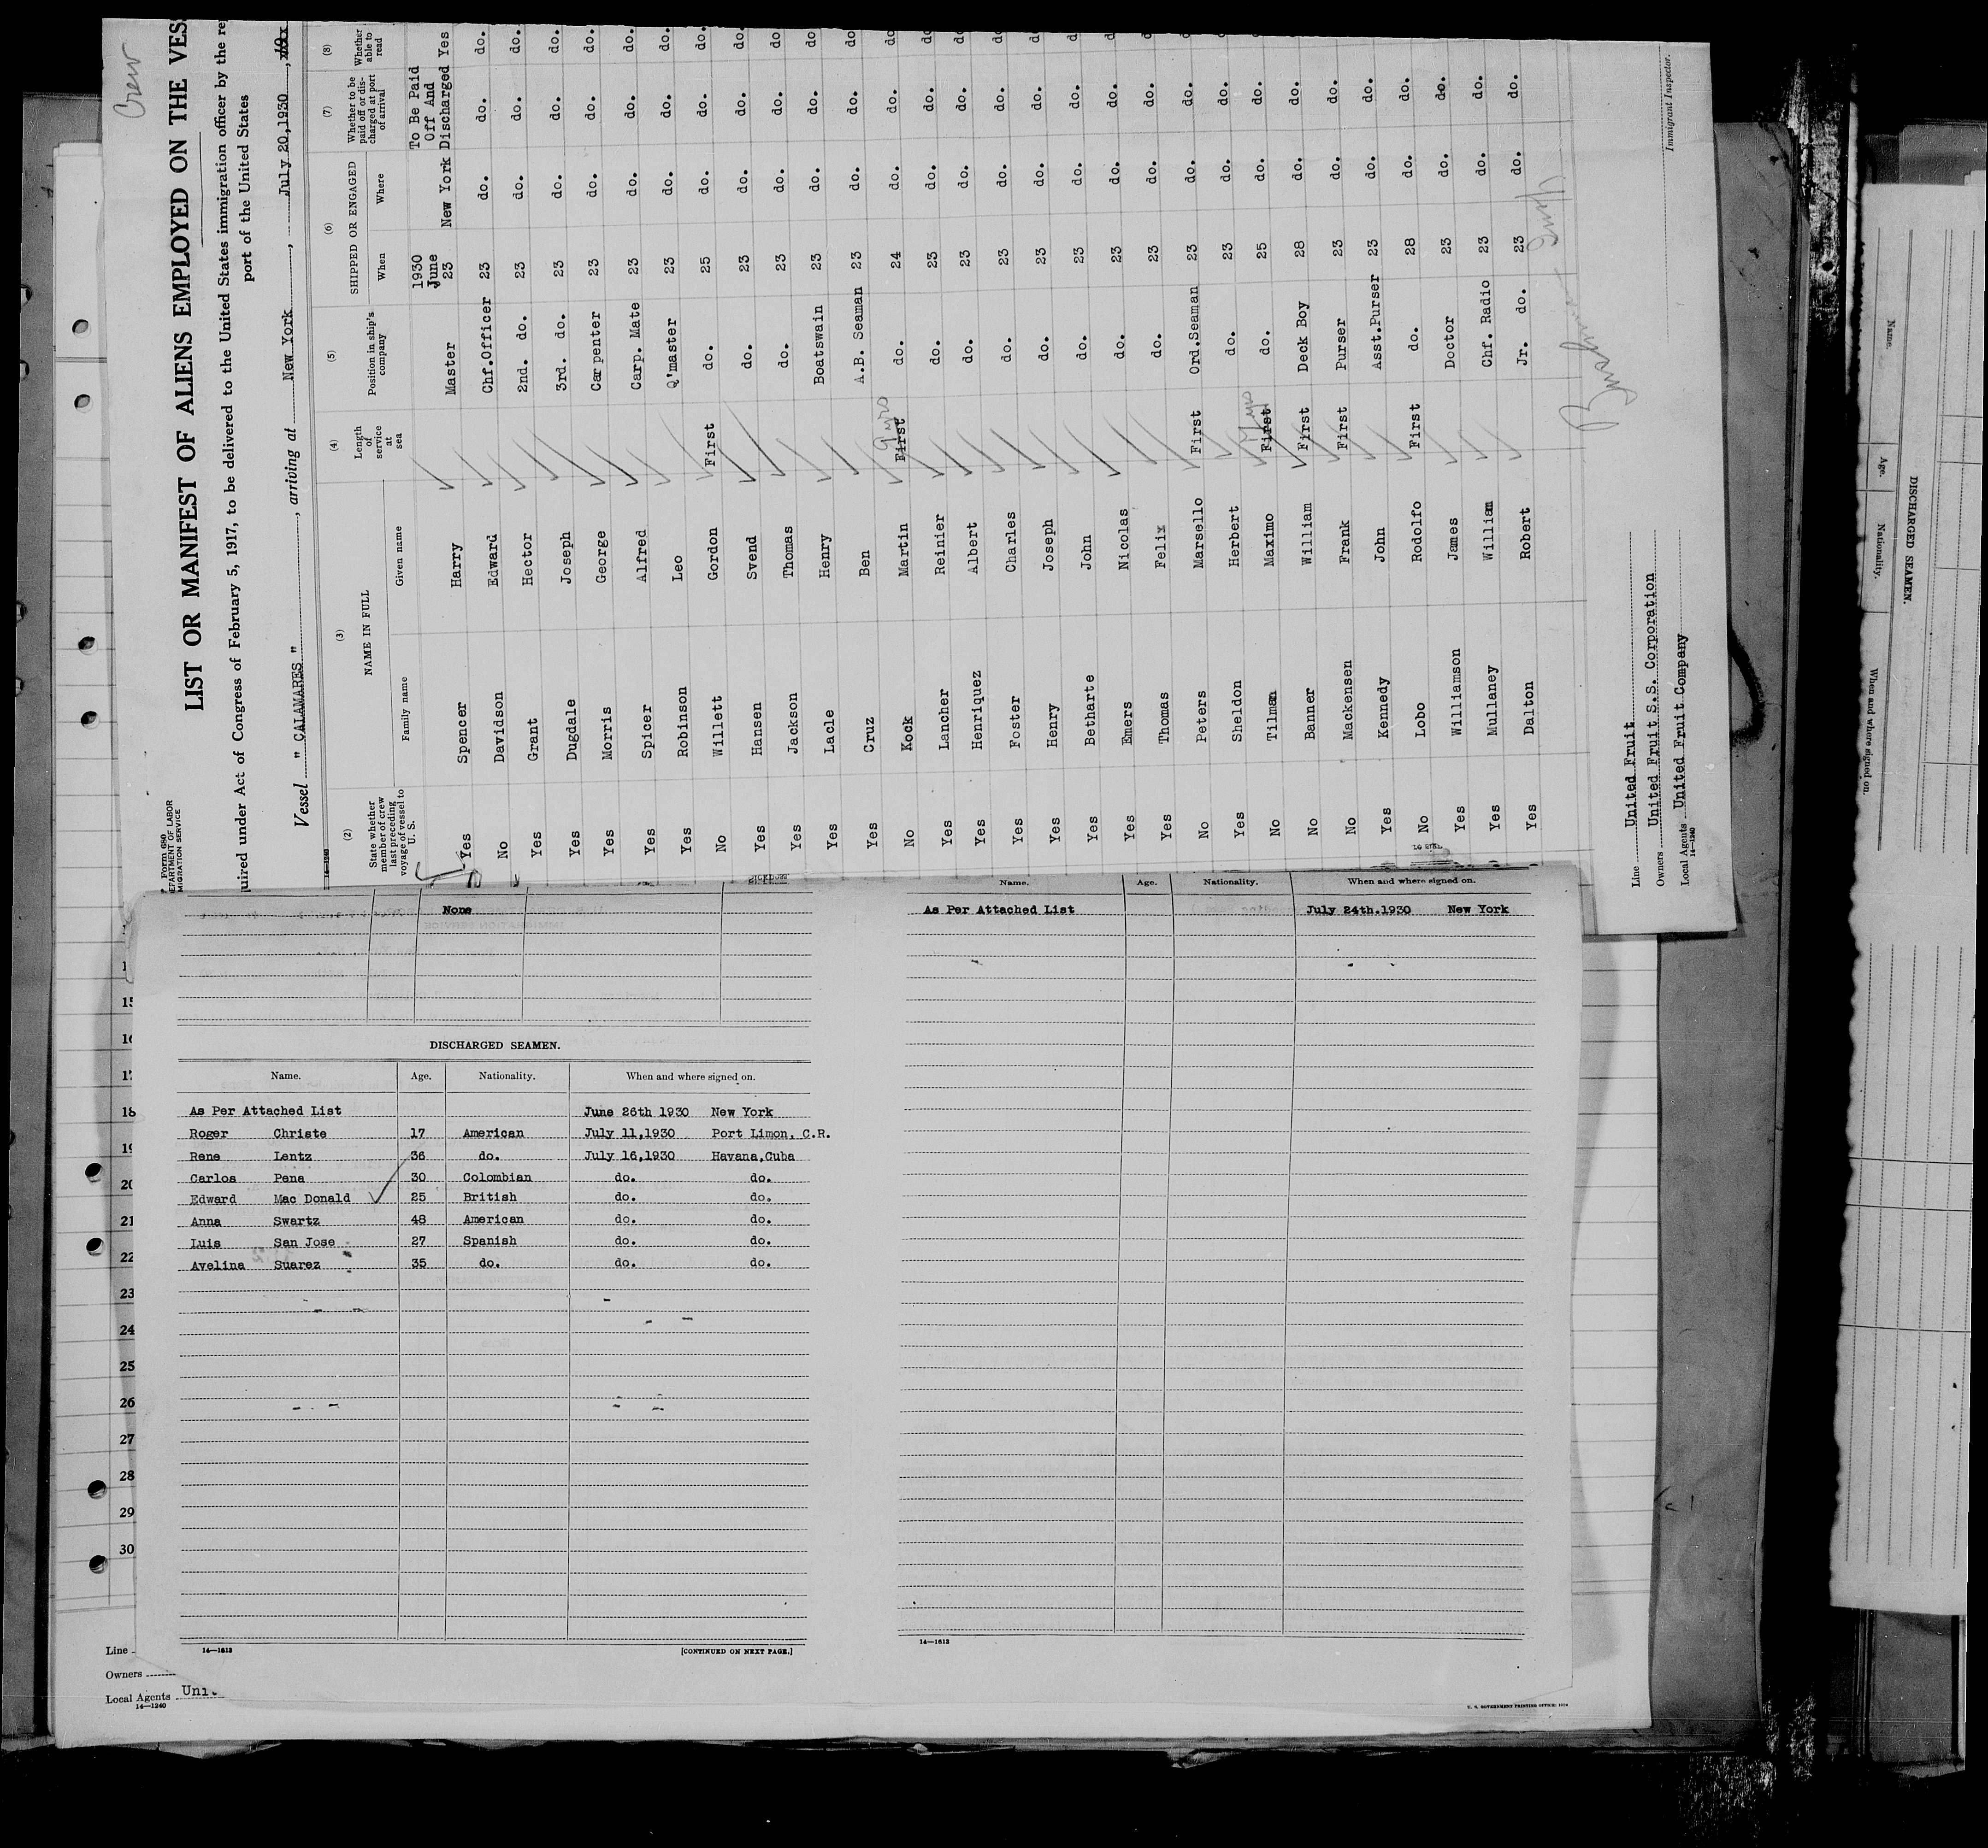 Crew
LIST OR MANIFEST OF ALIENS EMPLOYED ON THE VES
uired under Act of Congress of February 5, 1917, to be delivered to the United States immigration officer by the re
port of the United States
Vessel " CALAMARES " , arriving at New York , July 20,1930 , 19
Form 680
EPARTMENT OF LABOR
MIGRATION SERVICE
14-1240
(2) (3) (4) (5) (6) (7) (8)
State whether member of crew last preceding voyage of vessel to U. S. NAME IN FULL Length of service at sea Position in ship's company SHIPPED OR ENGAGED Whether to be paid off or discharged at port of arrival Whether able to read
Family name Given name When Where
1930 June To Be Paid Off And
Yes Spencer Harry Master 23 New York Discharged Yes
No Davidson Edward Chf.Officer 23 do. do. do.
Yes Grant Hector 2nd. do. 23 do. do. do.
Yes Dugdale Joseph 3rd. do. 23 do. do. do.
Yes Morris George Carpenter 23 do. do. do.
Yes Spicer Alfred Carp. Mate 23 do. do. do.
Yes Robinson Leo Q'master 23 do. do. do.
No Willett Gordon First do. 25 do. do. do.
Yes Hansen Svend do. 23 do. do. do.
Yes Jackson Thomas do. 23 do. do. do
Yes Lacle Henry Boatswain 23 do. do. do
Yes Cruz Ben A.B. Seaman 23 do. do. do
No Kock Martin First 9 yrs do. 24 do. do. do
Yes Lancher Reinier do. 23 do. do. do
Yes Henriquez Albert do. 23 do. do. do
Yes Foster Charles do. 23 do. do. do
Yes Henry Joseph do. 23 do. do. do
Yes Betharte John do. 23 do. do. d
Yes Emers Nicolas do. 23 do. do. d
Yes Thomas Felix do. 23 do. do.
No Peters Marsello First Ord.Seaman 23 do. do.
Yes Sheldon Herbert do. 23 do. do.
No Tilman Maximo First do. 25 do. do.
No Banner William First Deck Boy 28 do. do.
No Mackensen Frank First Purser 23 do. do.
Yes Kennedy John Asst.Purser 23 do. do.
No Lobo Rodolfo First do. 28 do. do.
Yes Williamson James Doctor 23 do. do.
Yes Mullaney William Chf. Radio 23 do. do.
Yes Dalton Robert Jr. do. 23 do. do.
Line United Fruit
Owners United Fruit S.S. Corporation
Local Agents United Fruit Company
14-1240
Immigrant Inspector.
None
DISCHARGED SEAMEN.
Name. Age. Nationality. When and where signed on.
As Per Attached List June 26th 1930 New York
Roger Christe 17 American July 11,1930 Port Limon, C.R.
Rene Lentz 36 do. July 16,1930 Havana,Cuba
Carlos Pena 30 Colombian do. do.
Edward Mac Donald 25 British do. do.
Anna Swartz 48 American do. do.
Luis San Jose 27 Spanish do. do.
Avelina Suarez 35 do. do. do.
14—1613 [CONTINUED ON NEXT PAGE.]
Name. Age. Nationality. When and where signed on.
As Per Attached List July 24th.1930 New York
14—1613
U. S. GOVERNMENT PRINTING OFFICE:
15
16
17
18
19
20
21
22
23
24
25
26
27
28
29
30
Line
Owners
Local Agents Unit
14—1240
DISCHARGED SEAMEN.
Name. Age. Nationality. When and where signed on.